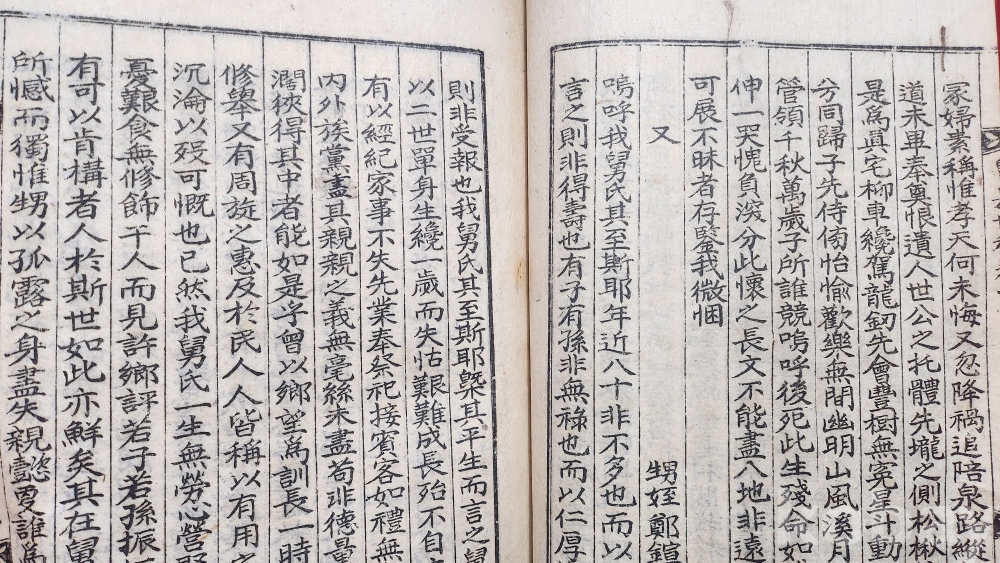 冢婦素稱惟孝天何未悔又忽降禍追陪泉路縱
道未畢奉奠恨遺人世公之托體先壠之側松楸
是爲眞宅柳車纔駕龍釰先會豊樹無冤星斗動
兮同歸子先侍傍怡愉歡樂無間幽明山風溪月
管領千秋萬歲子所誰競嗚呼後死此生殘命如
伸一哭愧負深分此懷之長文不能盡八地非遠
可展不昧者存鑒我微悃
又 甥姪鄭鎧
嗚呼我舅氏其至斯耶年近八十非不多也而以
言之則非得壽也有子有孫非無祿也而以仁厚
則非受報也我舅氏其至斯耶槩其平生而言之舅
以二世單身生纔一歲而失怙艱難成長殆不自
有以經紀家事不失先業奉祭祀接賓客如禮無
內外族黨盡其親親之義無毫絲未盡苟非德量
濶狹得其中者能如是乎曾以鄉望爲訓長一時
修擧又有周旋之惠及於民人人皆稱以有用之
沉淪以歿可慨也已然我舅氏一生無勞心營
憂艱食無修飾干人而見許鄉評若子若孫振
有可以肯構者人於斯世如此亦鮮矣其在舅
所憾而獨惟甥以孤露之身盡失親懿更誰爲